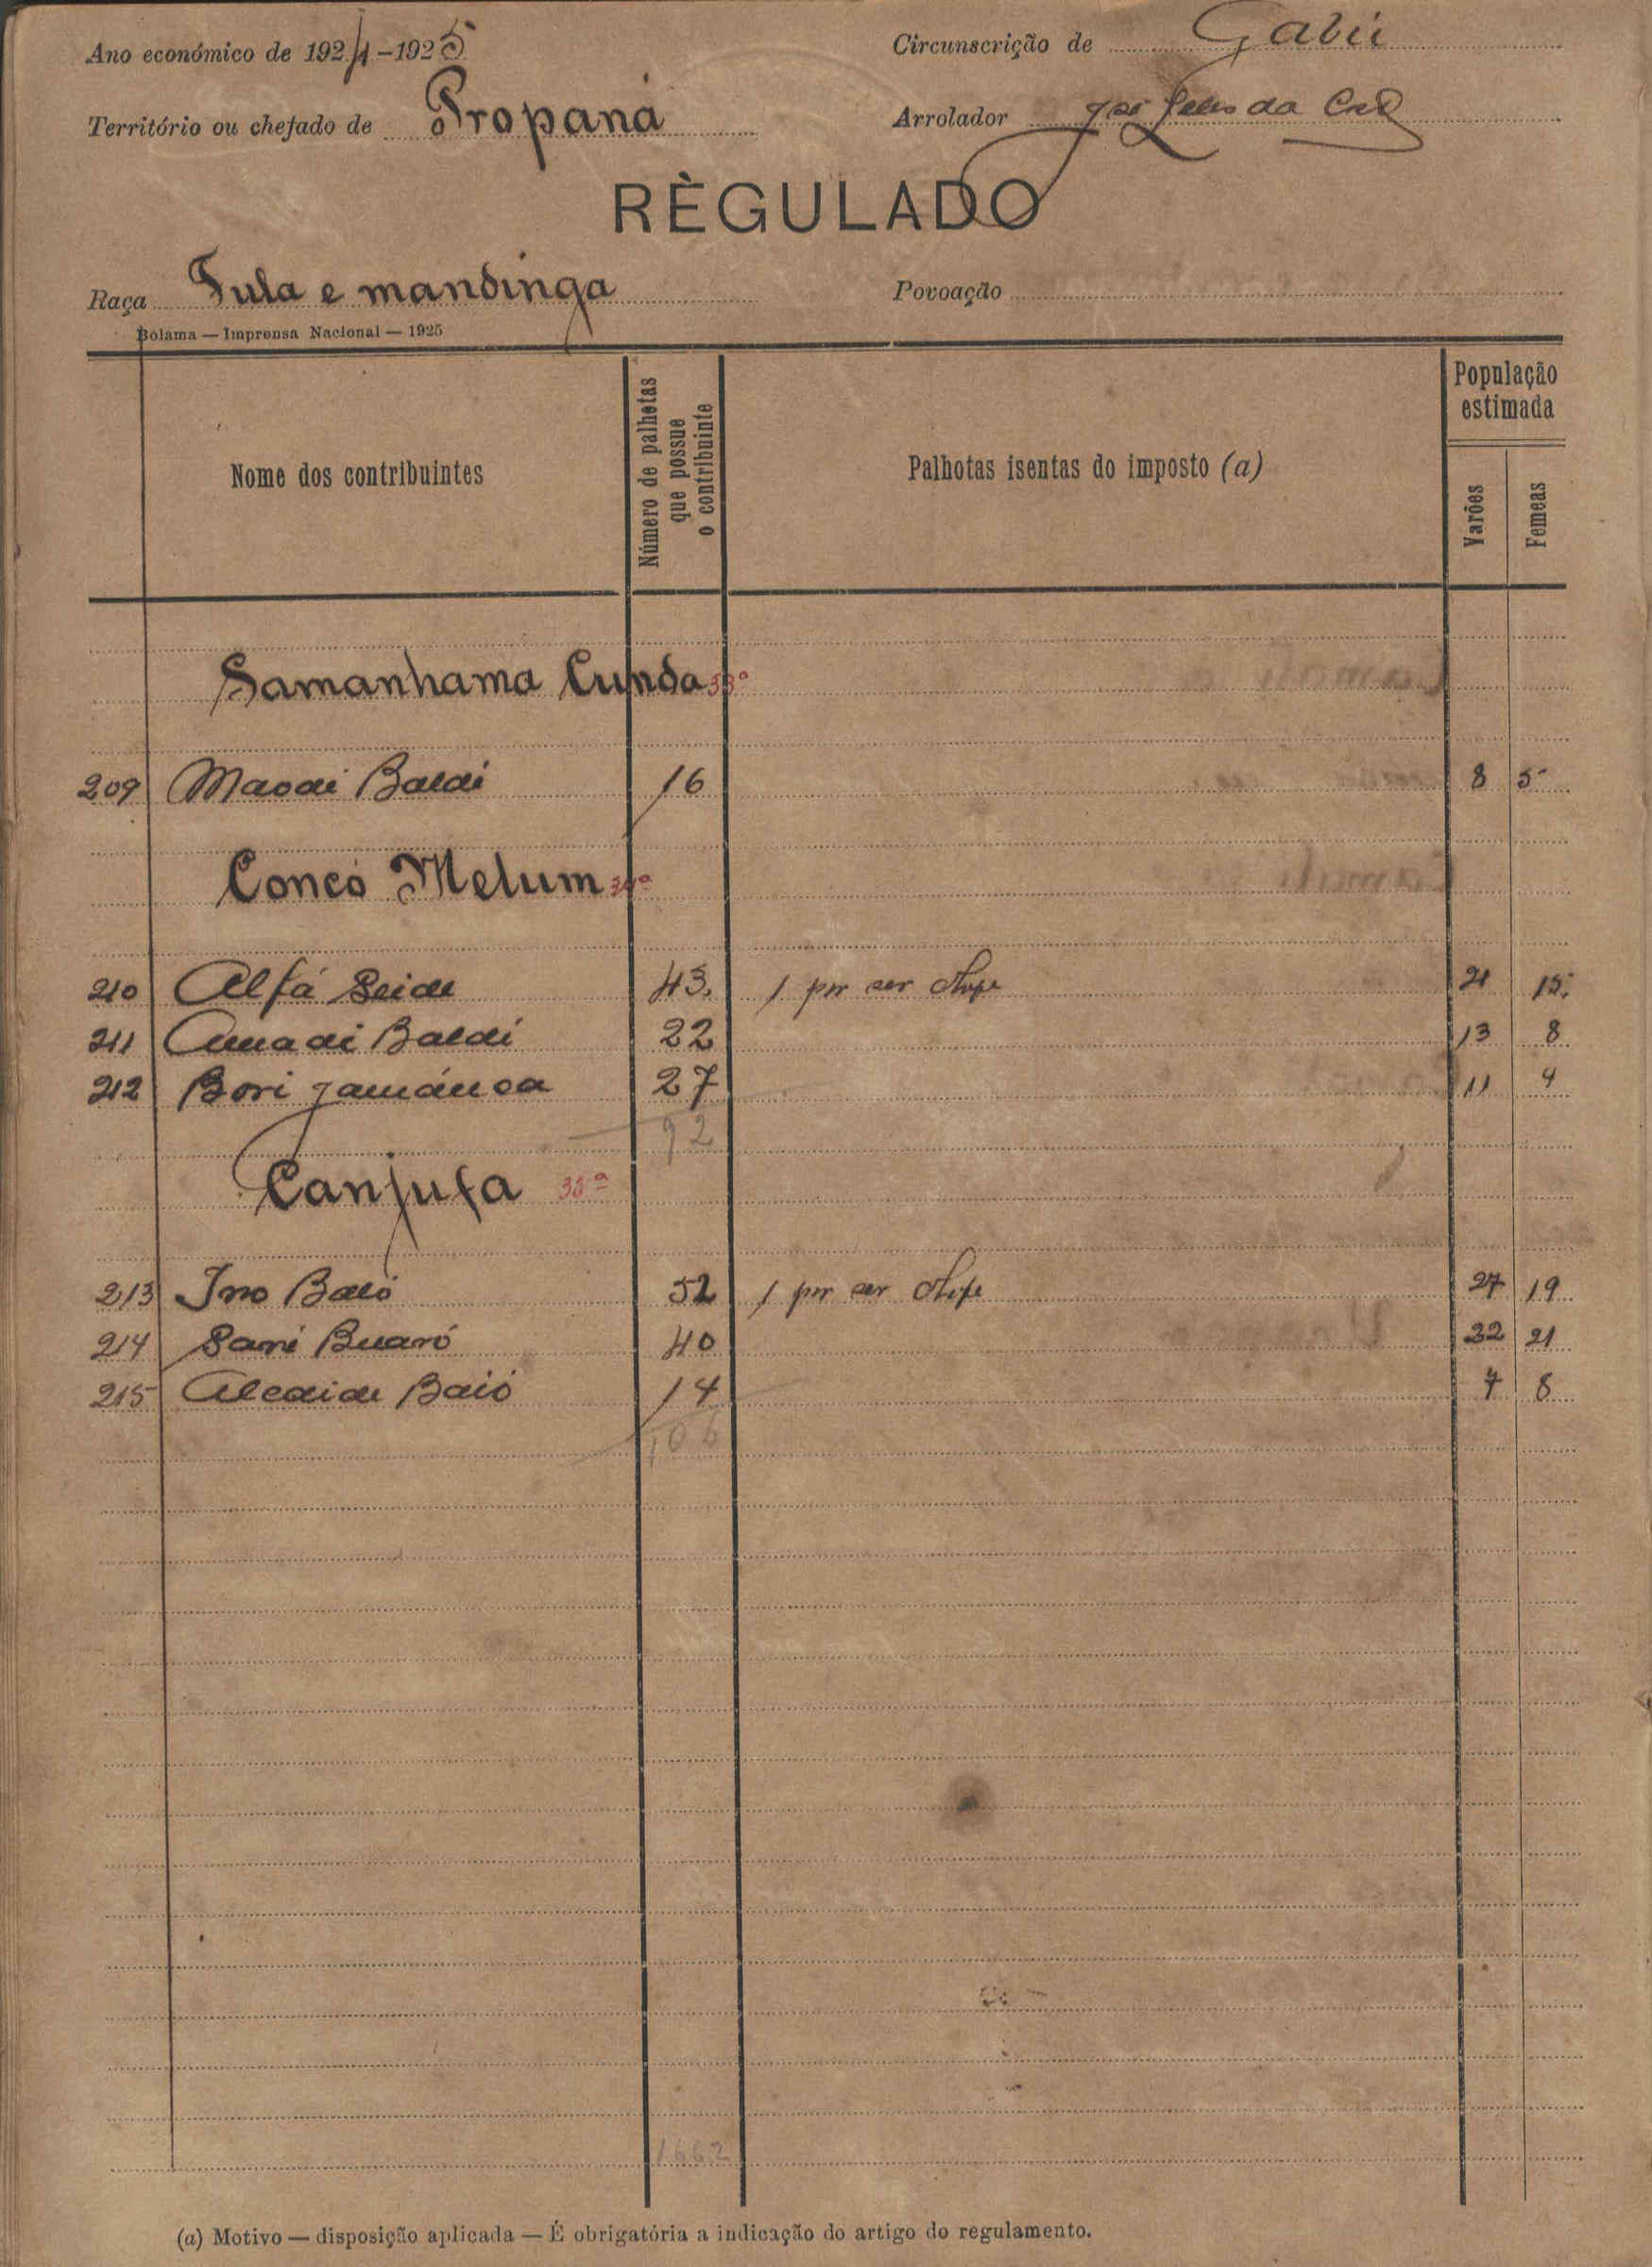 Ano económico de 1924-1925
Circunscrição de Gabú
Território ou chefado de Propaná
Arrolador da
RÈGULADO
Raça Fula e mandinga
Povoação
Bolama — Imprensa Nacional — 1925
Nome dos contribuintes
Número de palhotas que possue o contribuinte
Palhotas isentas do imposto (a)
População estimada
Varões
Femeas
Samanhama Cunda 33ª
209 Baldi 16 8 5
Concó Melum 34ª
210 Alfá Seide 43 1 por ser chefe 21 15
211 Amadi Baldi 22 13 8
212 Bori Jamánca 27 11 4
92
Canjufa
213 Ino Baió 52 1 por ser chefe 27 19
214 Sani Buaró 40 22 21
215 Alcaide Baió 14 7 8
106
1662
(a) Motivo — disposição aplicada — É obrigatória a indicação do artigo do regulamento.